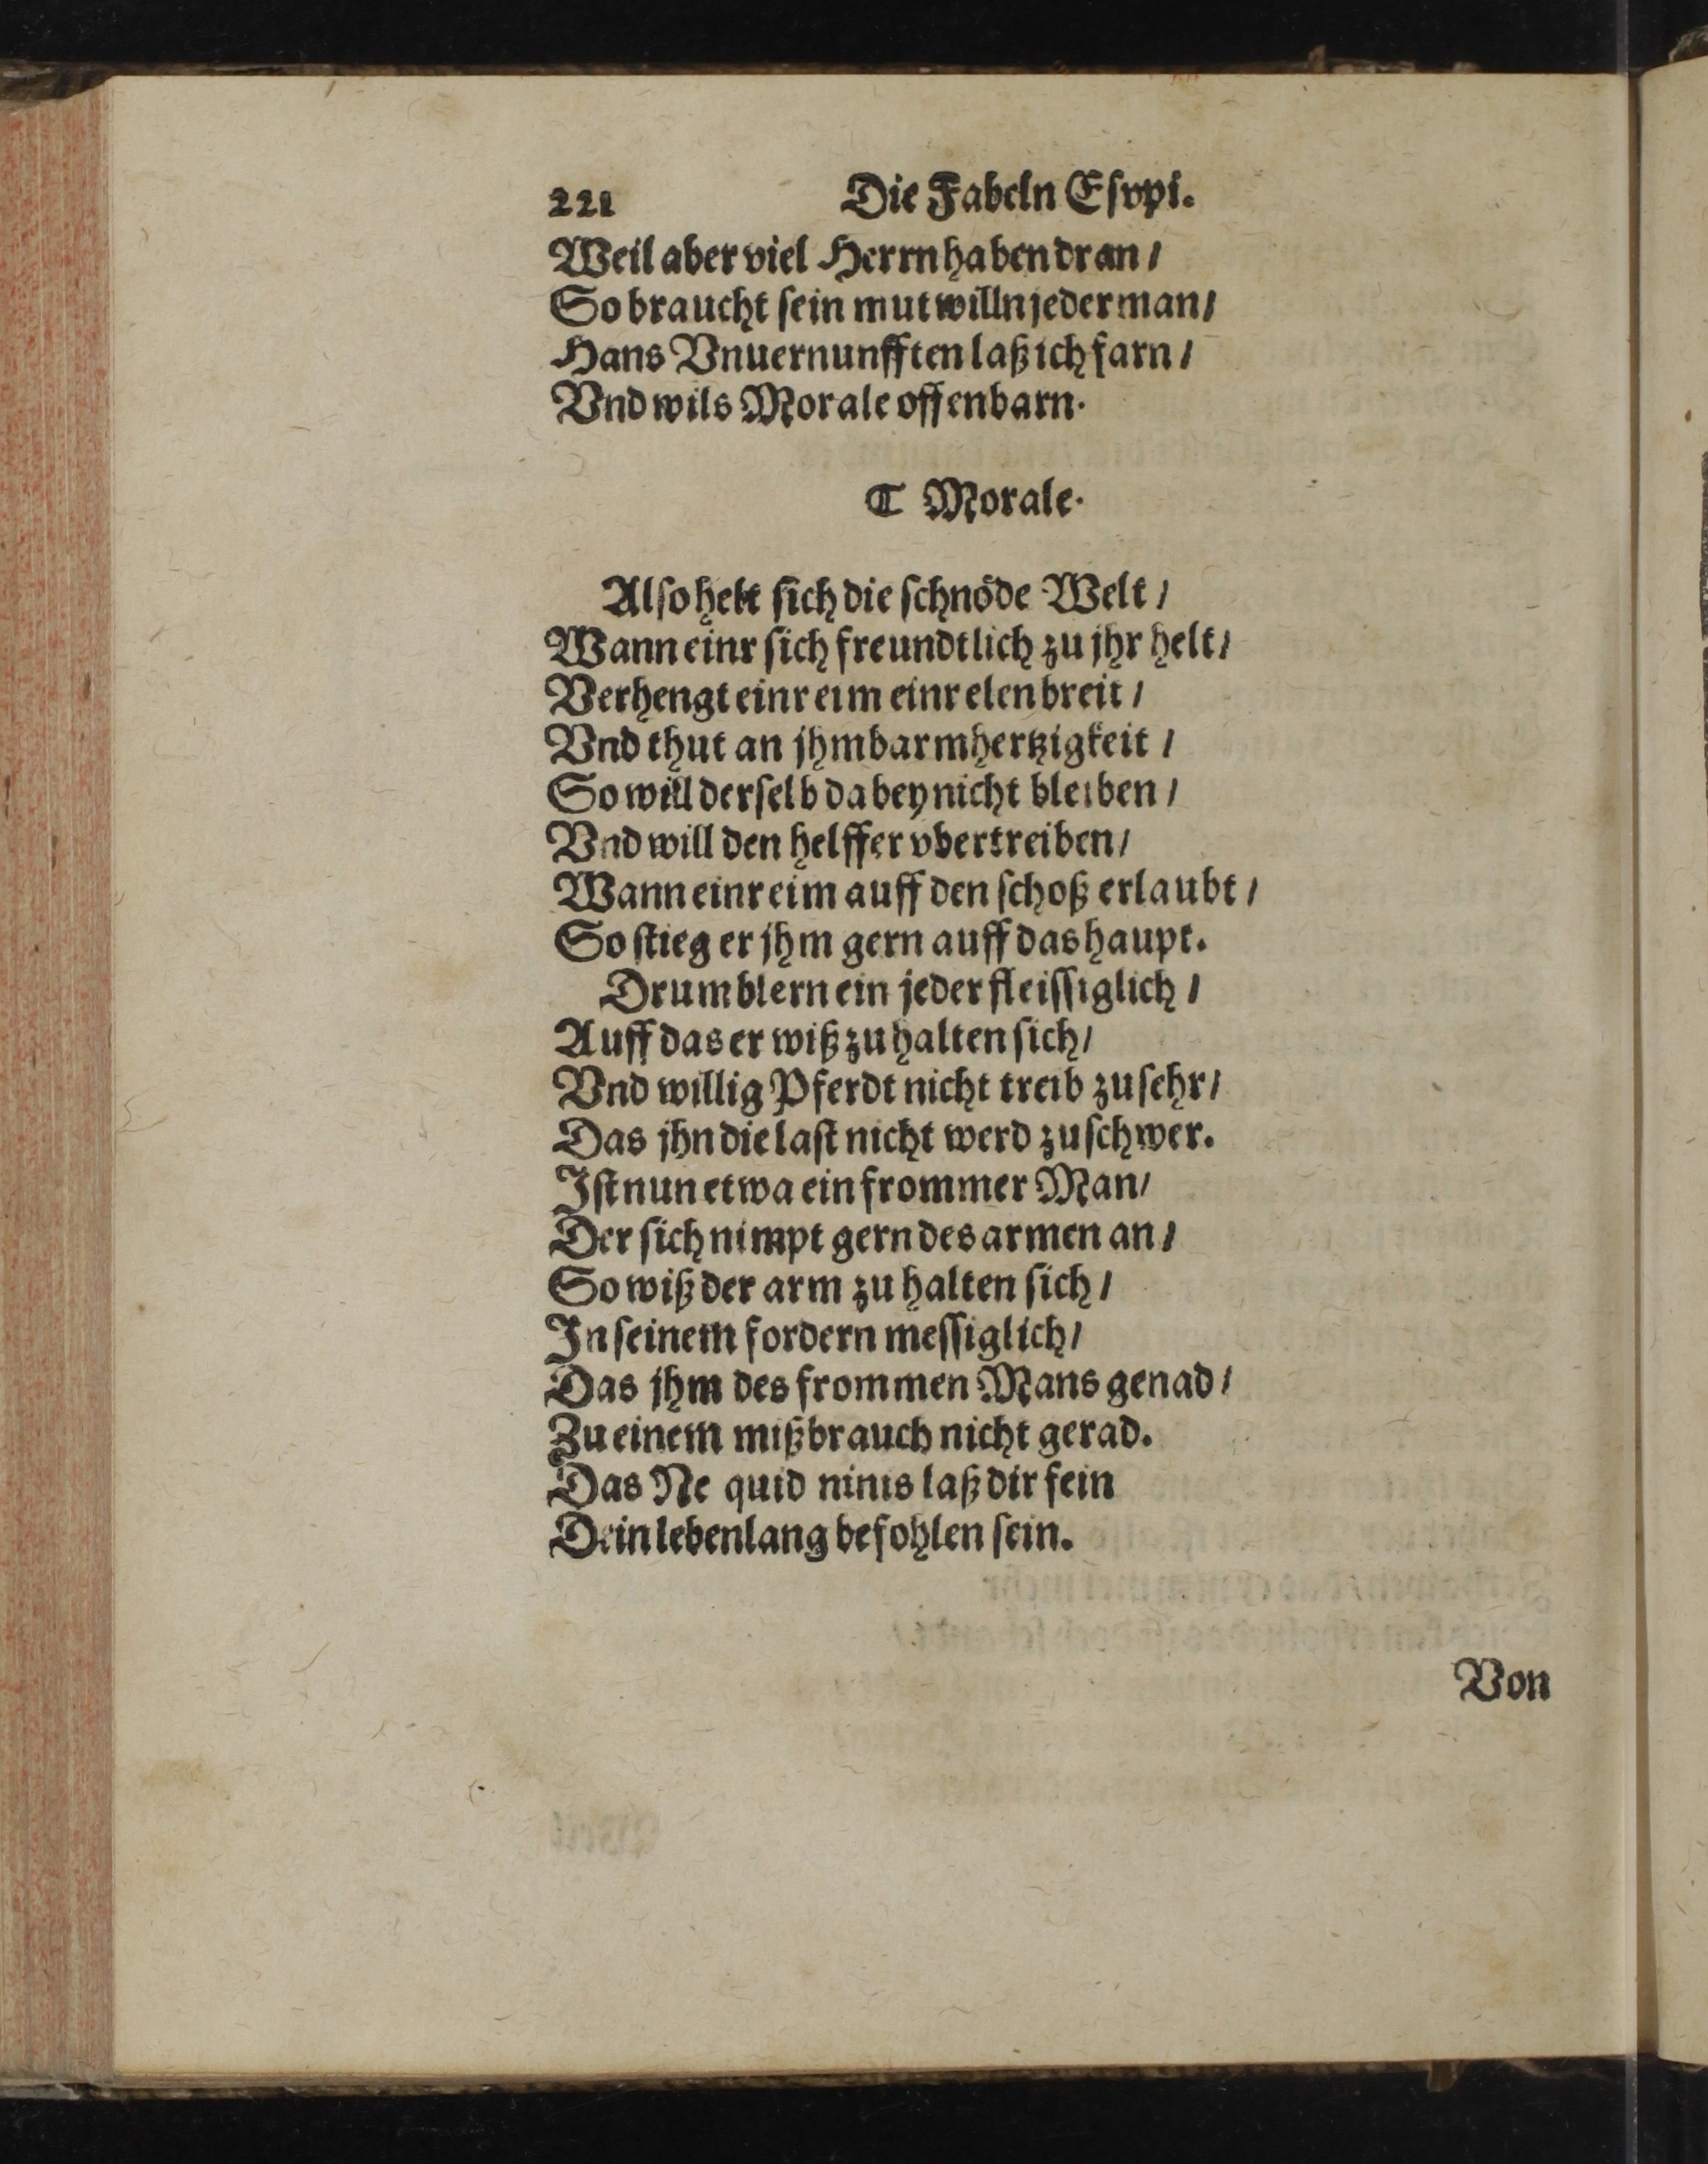 221 Die Fabeln Esopi.
Weil aber viel Herrn haben dran /
So braucht sein mutwilln jederman /
Hans Vnuernunfften laß ich farn /
Vnd wils Morale offenbarn.
¶ Morale.
Also helt sich die schnöde Welt /
Wann einr sich freundtlich zu jhr helt /
Verhengt einr eim einr elen breit /
Vnd thut an jhm barmhertzigkeit /
So will derselb dabey nicht bleiben /
Vnd will den helffer vbertreiben /
Wann einr eim auff den schoß erlaubt /
So stieg er jhm gern auff das haupt.
Drumb lern ein jeder fleissiglich /
Auff das er wiß zu halten sich /
Vnd willig Pferdt nicht treib zu sehr /
Das jhn die last nicht werd zu schwer.
Ist nun etwa ein frommer Man /
Der sich nimpt gern des armen an /
So wiß der arm zu halten sich /
In seinem fordern messiglich /
Das jhm des frommen Mans genad /
Zu einem mißbrauch nicht gerad.
Das Ne quid nimis laß dir fein
Dein lebenlang befohlen sein.
Von